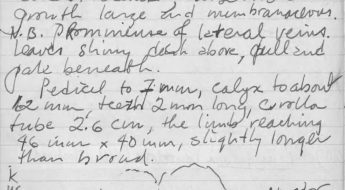 growth large and membranaceous.
N.B. Prominence of lateral veins.
Leaves shiny deep above, dull and
pale beneath.
Pedicel to 7 mm, calyx to about
12 mm, teeth 2 mm long, corolla
tube 2.6 cm, the limb reaching
46 mm x 40 mm, slightly longer
than broad.